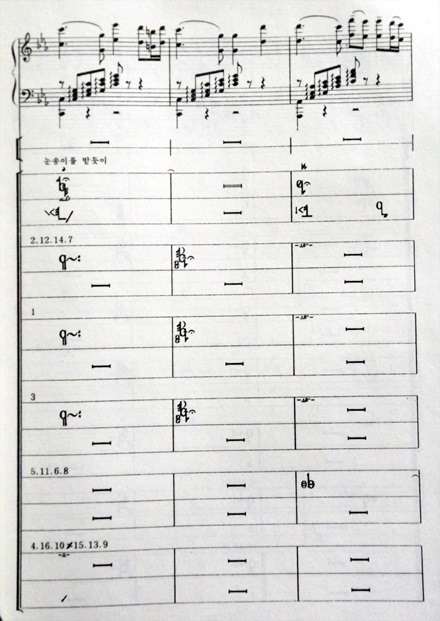 눈송이를 받듯이
2.12.14.7
1
3
5.11.6.8
4.16.10✗15.13.9